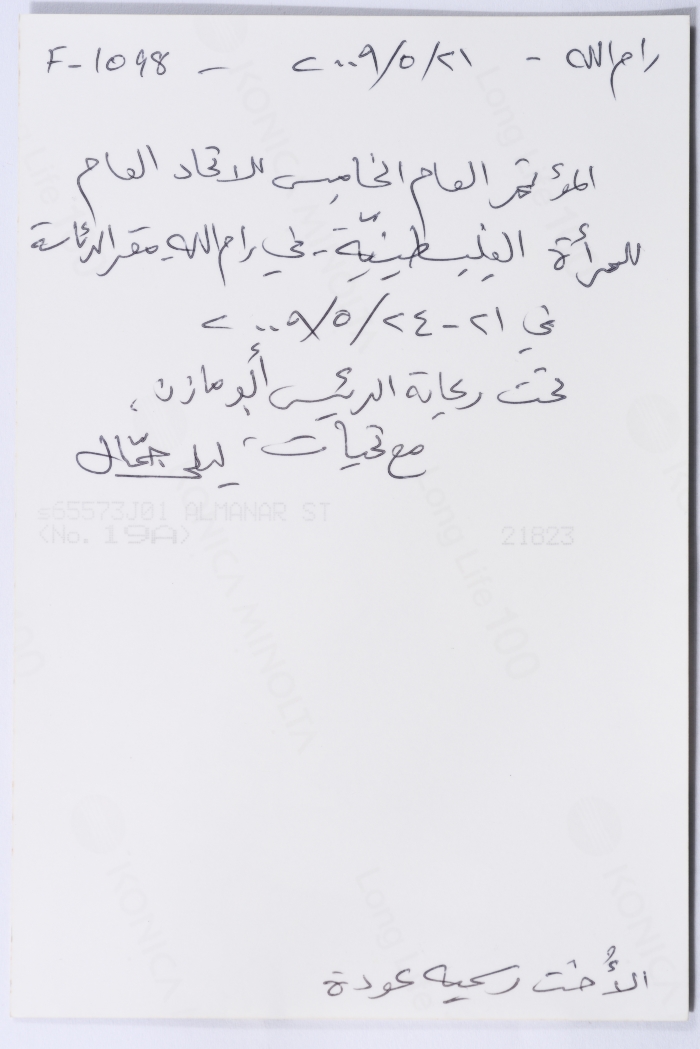 رام الله - ٢١/٥/٢٠٠٩ - F-1098
المؤتمر العام الخامس للاتحاد العام
للمرأة الفلسطينيّة - في رام الله مقر الرئاسة
في ٢١-٢٤/٥/٢٠٠٩
تحت رعاية الرئيس أبو مازن،
مع تحيات، ليلى جمّال
s65573J01 ALMANAR ST
(No. 19A) 21823
KONICA MINOLTA
Long Life 100
الأُخت رسمية عودة